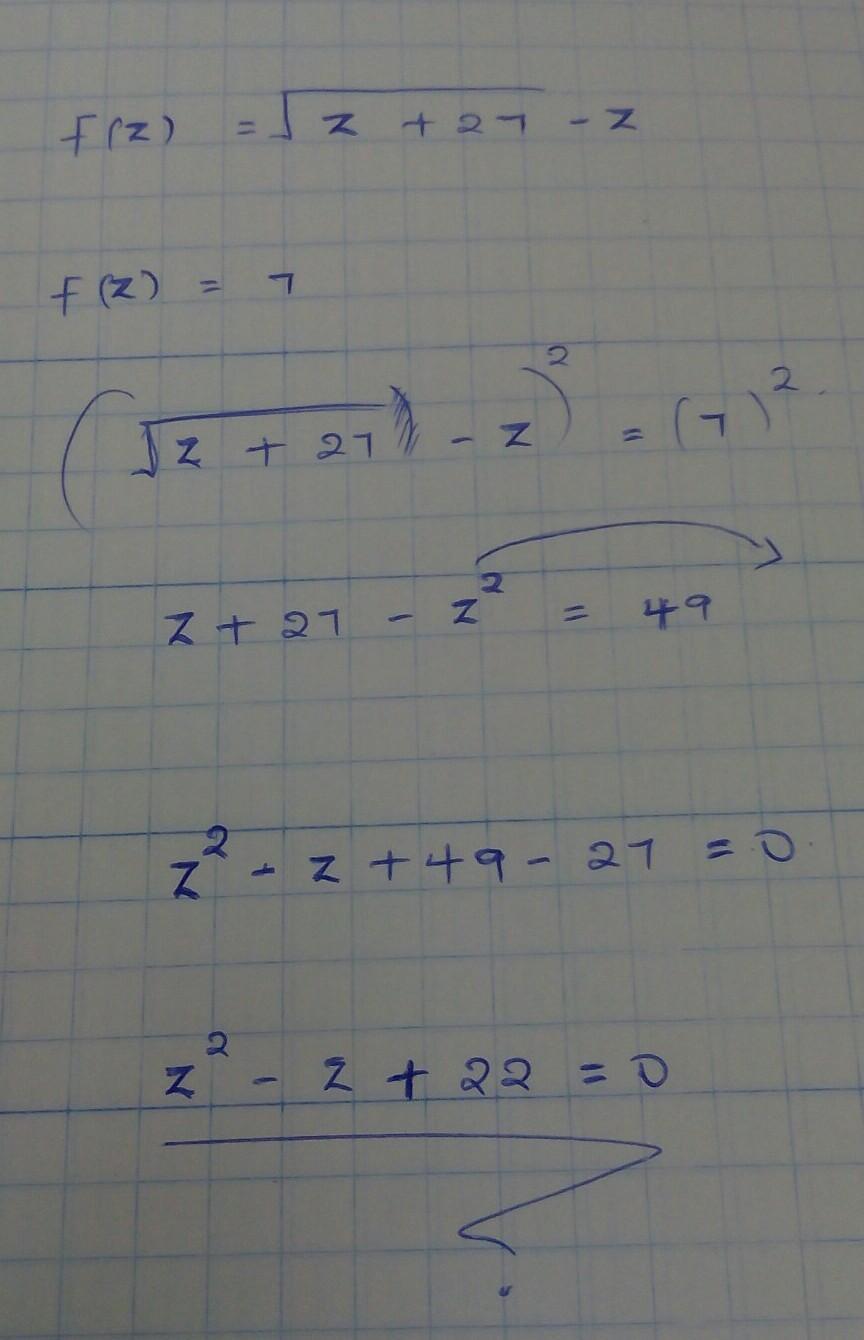 f(z) = √z + 27 - z
f(z) = 7
(√z + 27 - z)² = (7)²
z + 27 - z² = 49
z² - z + 49 - 27 = 0
z² - z + 22 = 0
?